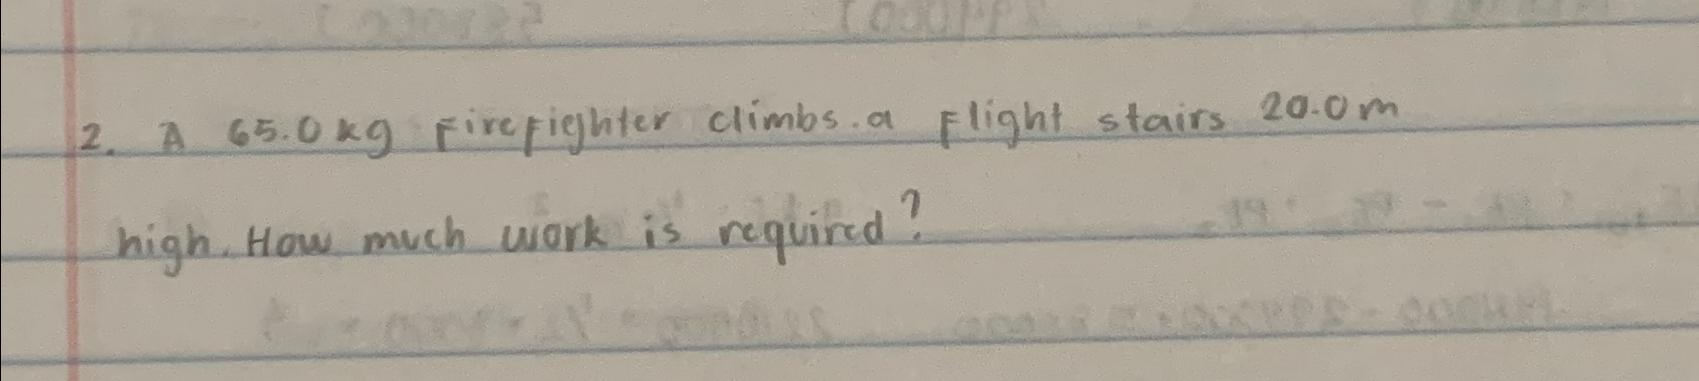 2. A 65.0 kg firefighter climbs a flight stairs 20.0 m
high. How much work is required?